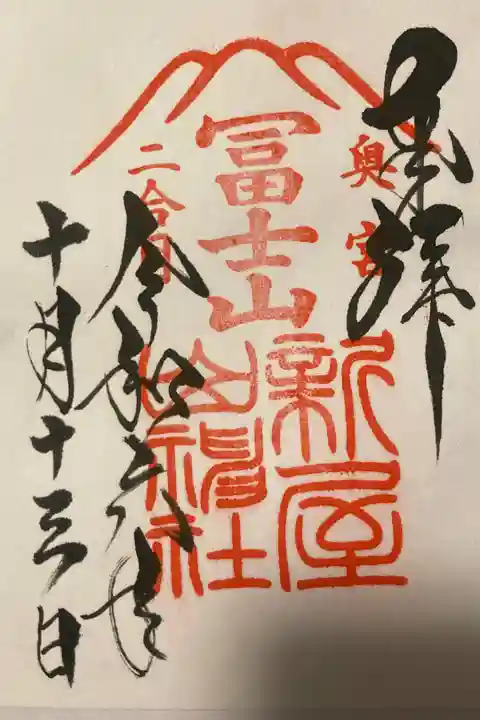 奉拝
奥宮
冨士山
二合目
新屋
山神社
令和六年
十月十三日